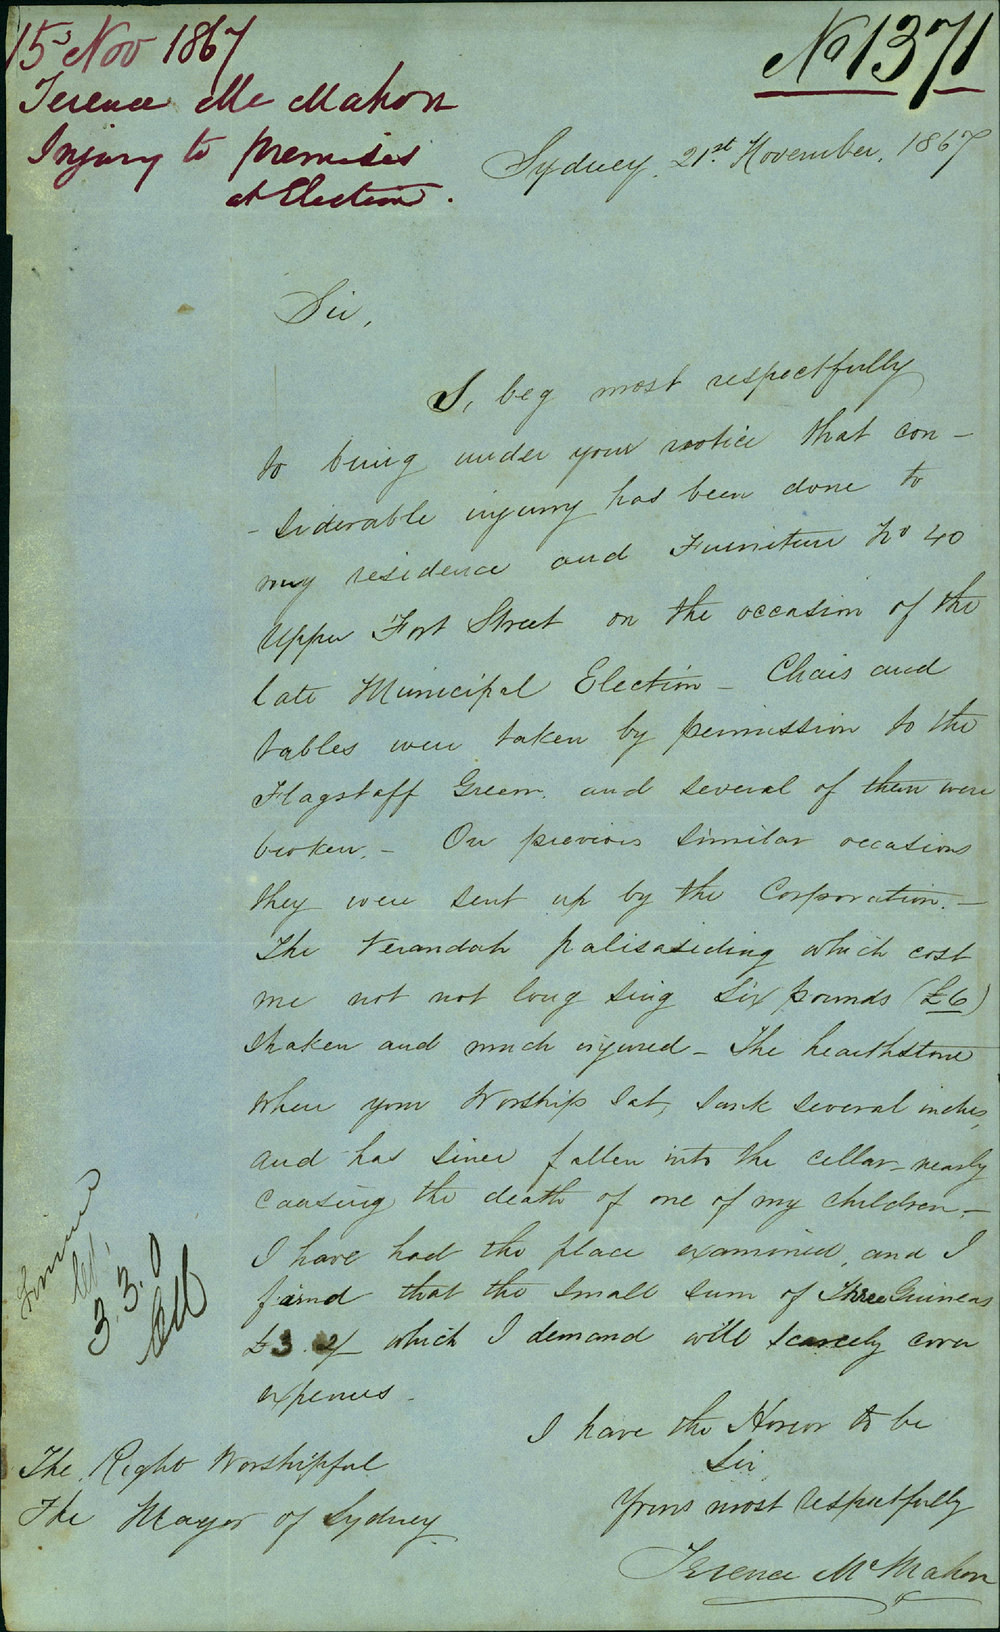 15 Nov 1867
Terence Mc Mahon
Injury to premises
at Election.
No 1371
Sydney, 21st November, 1867
Sir,
I, beg most respectfully
to bring under your notice that con-
-siderable injury has been done to
my residence and Furniture No 40
Upper Fort Street on the occasion of the
late Municipal Election - Chairs and
tables were taken by permission to the
Flagstaff Green. and several of them were
broken. - On previous similar occasions
they were sent up by the Corporation. -
The Verandah palisaseding which cost
me not not long sing six pounds (£6)
shaken and much injured - The hearthstone
where your Worship sat, sank several inches,
and has since fallen into the cellar - nearly
causing the death of one of my children. -
I have had the place examined, and I
find that the small sum of Three Guineas
£3. which I demand will scarcely cover
expenses -
I have the Honor to be
Sir
Yours most respectfully
Terence McMahon
The Right Worshipful
The Mayor of Sydney.
3.3.0